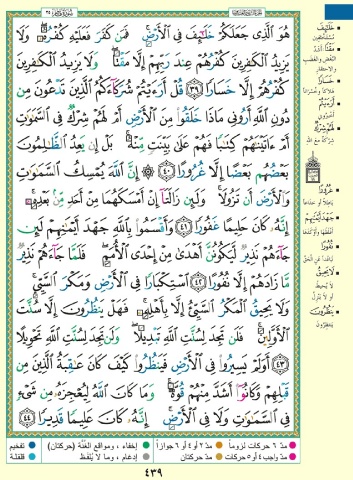 هُوَ ٱلَّذِى جَعَلَكُمْ خَلَٰٓئِفَ فِى ٱلْأَرْضِ ۚ فَمَن كَفَرَ فَعَلَيْهِ كُفْرُهُۥ ۖ وَلَا
يَزِيدُ ٱلْكَٰفِرِينَ كُفْرُهُمْ عِندَ رَبِّهِمْ إِلَّا مَقْتًا ۖ وَلَا يَزِيدُ ٱلْكَٰفِرِينَ
كُفْرُهُمْ إِلَّا خَسَارًا ٣٩ قُلْ أَرَءَيْتُمْ شُرَكَآءَكُمُ ٱلَّذِينَ تَدْعُونَ مِن
دُونِ ٱللَّهِ أَرُونِى مَاذَا خَلَقُوا۟ مِنَ ٱلْأَرْضِ أَمْ لَهُمْ شِرْكٌ فِى ٱلسَّمَٰوَٰتِ
أَمْ ءَاتَيْنَٰهُمْ كِتَٰبًا فَهُمْ عَلَىٰ بَيِّنَتٍ مِّنْهُ ۚ بَلْ إِن يَعِدُ ٱلظَّٰلِمُونَ
بَعْضُهُم بَعْضًا إِلَّا غُرُورًا ٤٠ ۞ إِنَّ ٱللَّهَ يُمْسِكُ ٱلسَّمَٰوَٰتِ
وَٱلْأَرْضَ أَن تَزُولَا ۚ وَلَئِن زَالَتَآ إِنْ أَمْسَكَهُمَا مِنْ أَحَدٍ مِّنۢ بَعْدِهِۦٓ ۚ
إِنَّهُۥ كَانَ حَلِيمًا غَفُورًا ٤١ وَأَقْسَمُوا۟ بِٱللَّهِ جَهْدَ أَيْمَٰنِهِمْ لَئِن
جَآءَهُمْ نَذِيرٌ لَّيَكُونُنَّ أَهْدَىٰ مِنْ إِحْدَى ٱلْأُمَمِ ۖ فَلَمَّا جَآءَهُمْ نَذِيرٌ
مَّا زَادَهُمْ إِلَّا نُفُورًا ٤٢ ٱسْتِكْبَارًا فِى ٱلْأَرْضِ وَمَكْرَ ٱلسَّيِّئِ ۚ
وَلَا يَحِيقُ ٱلْمَكْرُ ٱلسَّيِّئُ إِلَّا بِأَهْلِهِۦ ۚ فَهَلْ يَنظُرُونَ إِلَّا سُنَّتَ
ٱلْأَوَّلِينَ ۚ فَلَن تَجِدَ لِسُنَّتِ ٱللَّهِ تَبْدِيلًا ۖ وَلَن تَجِدَ لِسُنَّتِ ٱللَّهِ تَحْوِيلًا
٤٣ أَوَلَمْ يَسِيرُوا۟ فِى ٱلْأَرْضِ فَيَنظُرُوا۟ كَيْفَ كَانَ عَٰقِبَةُ ٱلَّذِينَ مِن
قَبْلِهِمْ وَكَانُوٓا۟ أَشَدَّ مِنْهُمْ قُوَّةً ۚ وَمَا كَانَ ٱللَّهُ لِيُعْجِزَهُۥ مِن شَىْءٍ
فِى ٱلسَّمَٰوَٰتِ وَلَا فِى ٱلْأَرْضِ ۚ إِنَّهُۥ كَانَ عَلِيمًا قَدِيرًا ٤٤
خَلَائِفَ
مَقْتًا
خَسَارًا
أَرَءَيْتُمْ
لَهُمْ شِرْكٌ
غُرُورًا
جَهْدَ أَيْمَانِهِمْ
نُفُورًا
لَا يَحِيقُ
يَنظُرُونَ
مدّ ٦ حركات لزوماً
مدّ ٢ أو ٤ أو ٦ جوازاً
إخفاء ، ومواقع الغنّة (حركتان)
تفخيم
مدّ واجب ٤ أو ٥ حركات
مدّ حركتان
إدغام ، وما لا يُلفَظ
قلقلة
٤٣٩